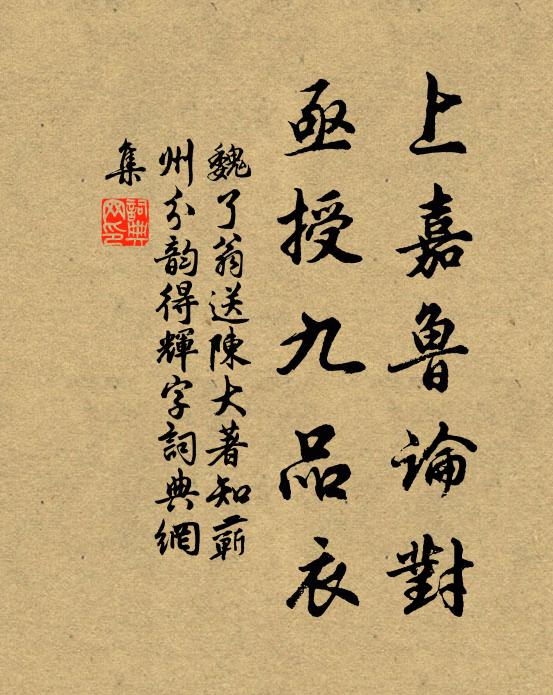 上嘉魯論對
亟授九品衣
魏了翁送陳大著知蘄
州分韵得輝字詞典網
集
詞典
网印